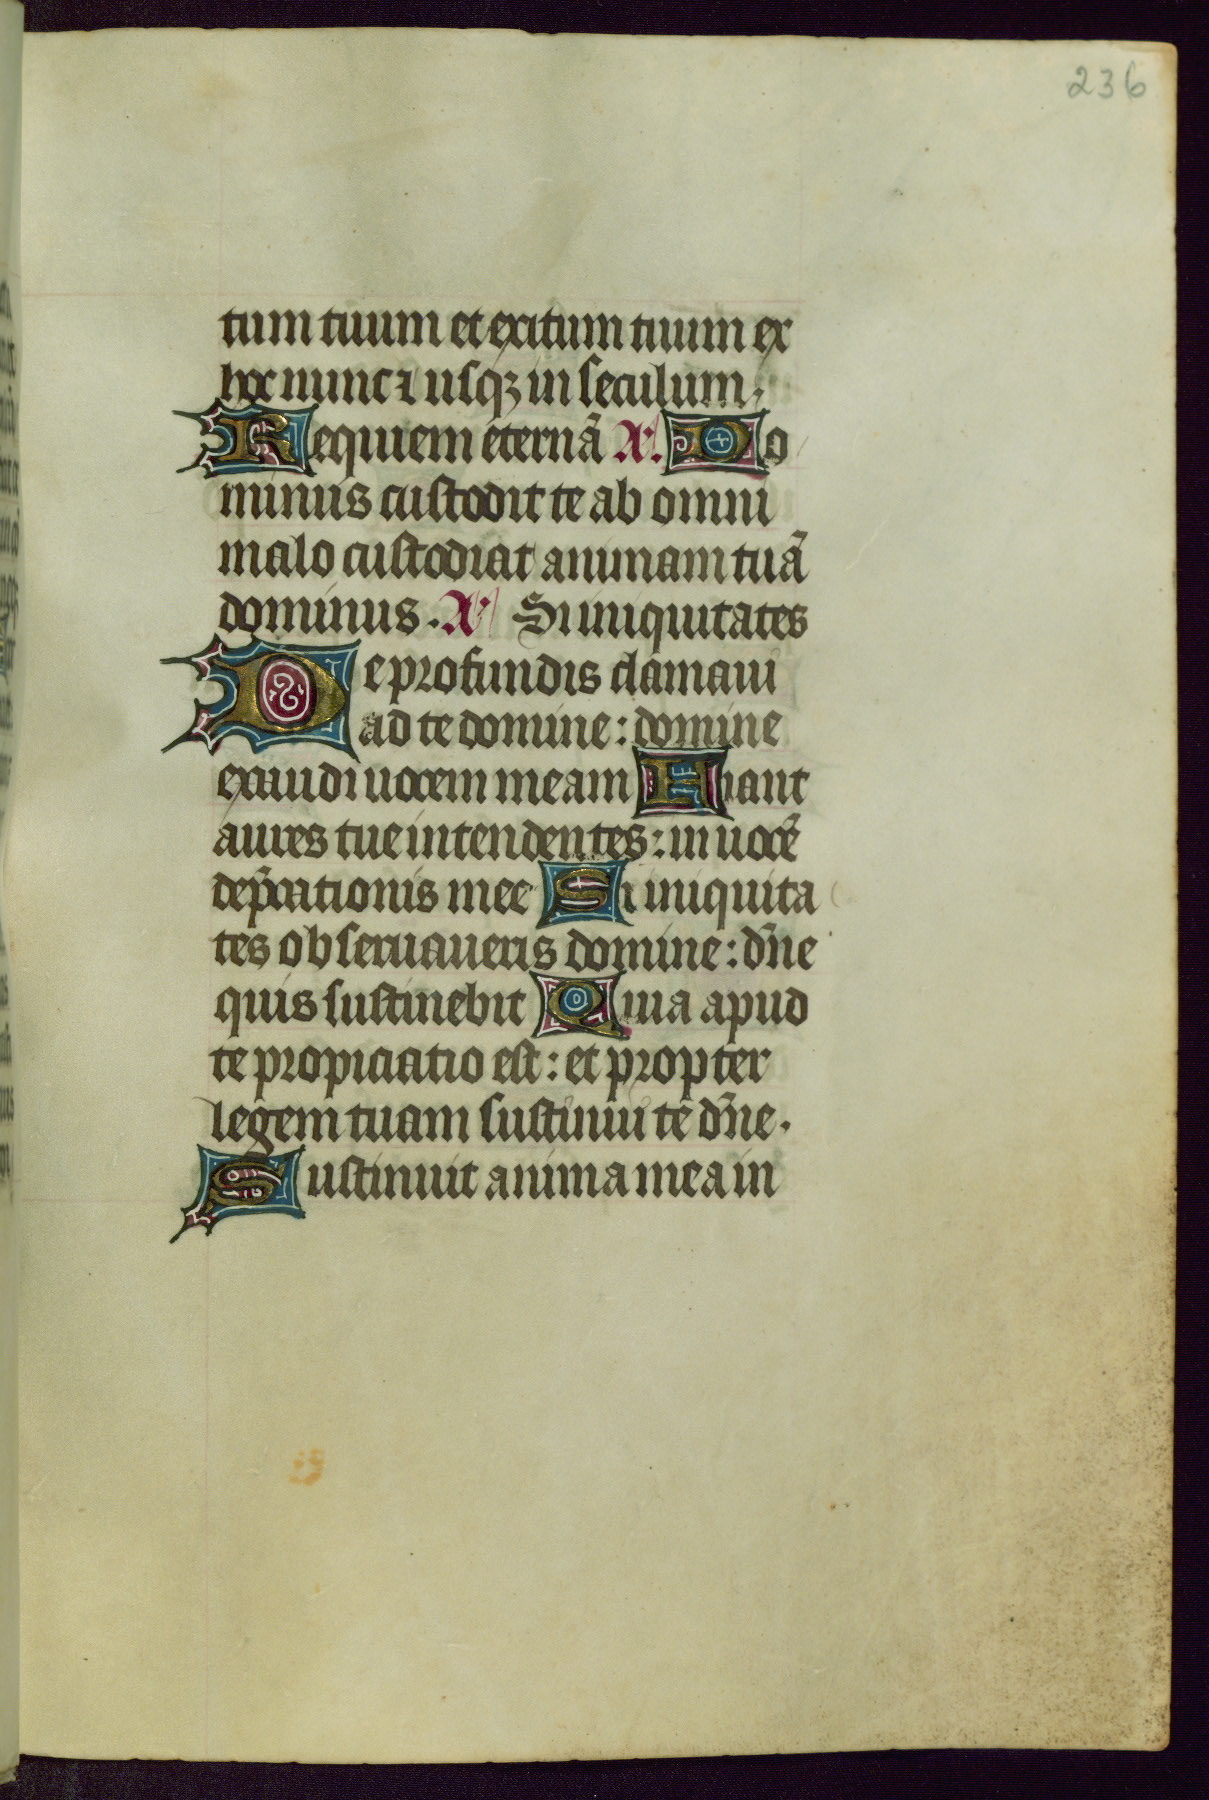 236
tum tuum et exitum tuum ex
hoc nunc ⁊ usqꝫ in seculum.
Requiem eternã A'. Do
minus custodit te ab omni
malo custodiat animam tuã
dominus. A' Si iniquitates
De profundis clamaui
ad te domine: domine
exaudi uocem meam Fiant
aures tue intendentes: in uocẽ
dep̃cationis mee Si iniquita
tes obseruaueris domine: dñe
quis sustinebit Quia apud
te propiciatio est: et propter
legem tuam sustinui te dñe.
Sustinuit anima mea in